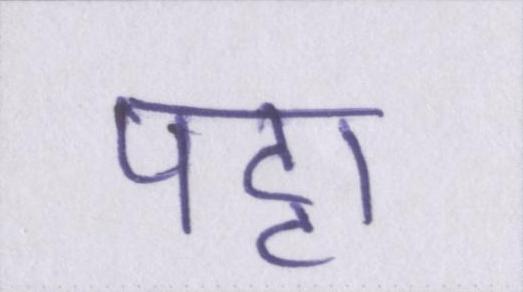 पट्टा